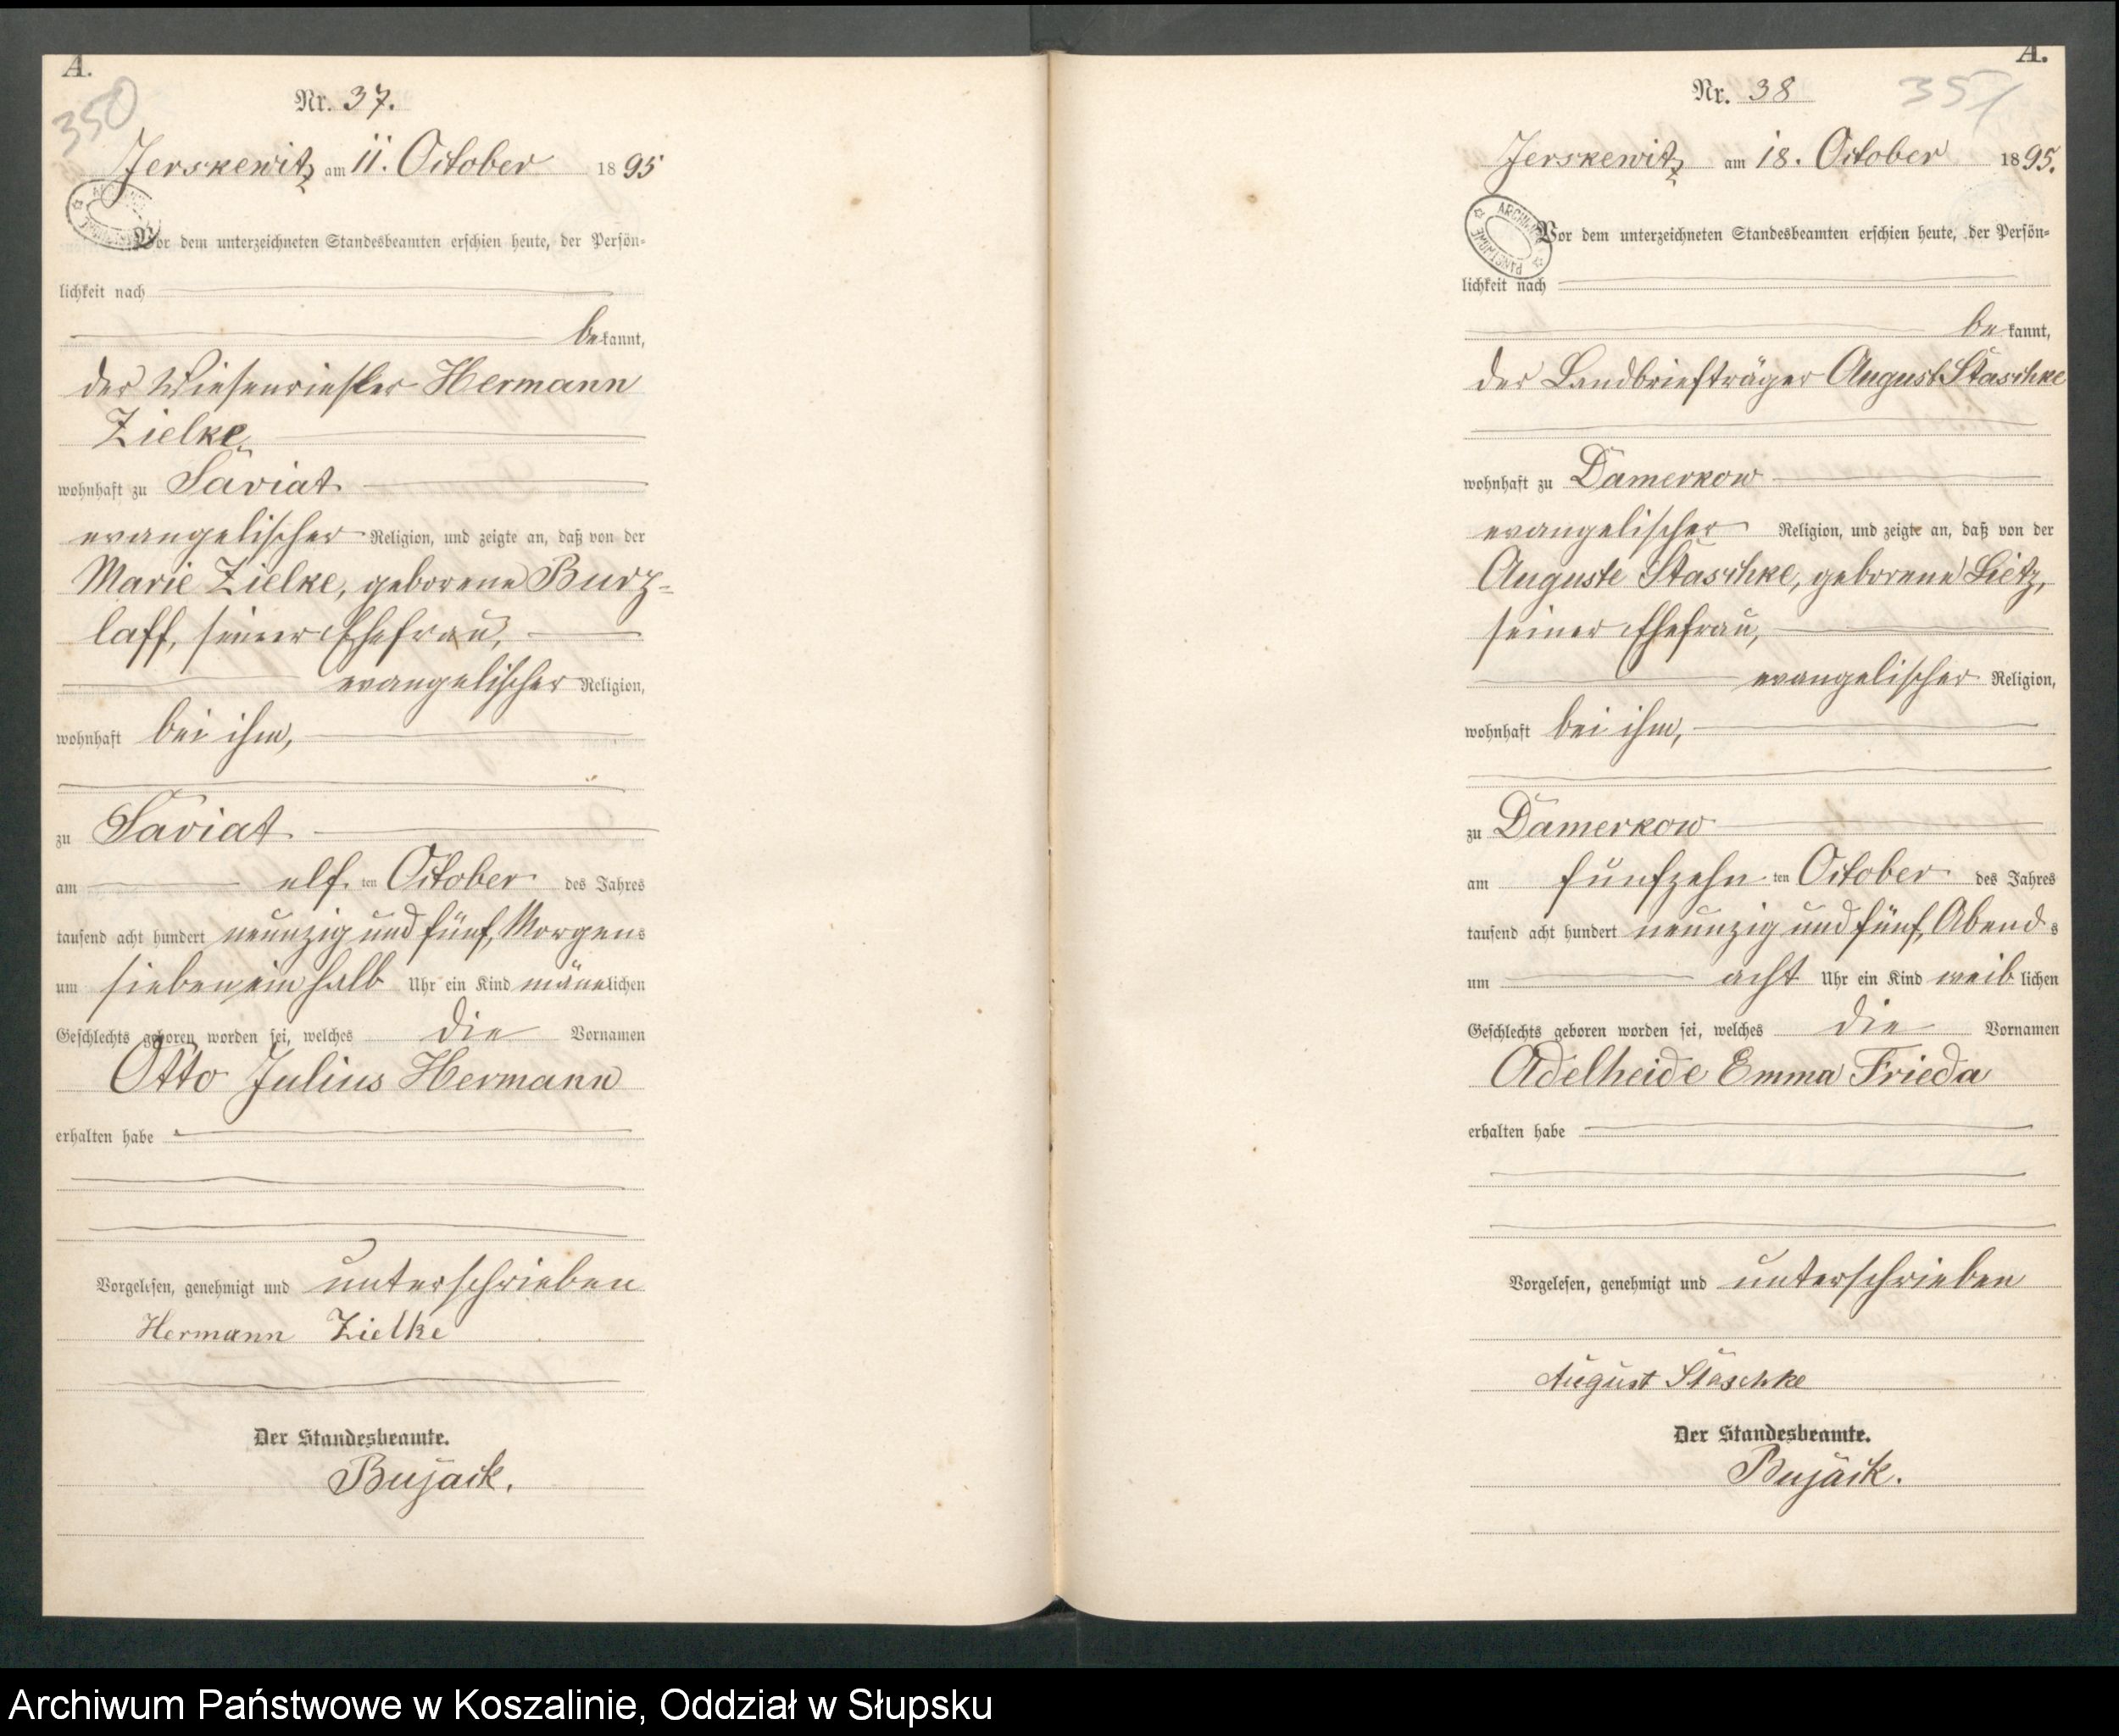 A.
350
Nr. 37.
Jerskewitz am 11. October 1895
Vor dem unterzeichneten Standesbeamten erschien heute, der Persön-
lichkeit nach
bekannt,
der Wiesenriesler Hermann
Zielke
wohnhaft zu Saviat
evangelischer Religion, und zeigte an, daß von der
Marie Zielke, geborene Burz-
laff, seiner Ehefrau,
evangelischer Religion,
wohnhaft bei ihm,
zu Saviat
am elf ten October des Jahres
tausend acht hundert neunzig und fünf, Morgens
um sieben ein halb Uhr ein Kind männlichen
Geschlechts geboren worden sei, welches die Vornamen
Otto Julius Hermann
erhalten habe
Vorgelesen, genehmigt und unterschrieben
Hermann Zielke
Der Standesbeamte.
Bujack.
A.
351
Nr. 38
Jerskewitz am 18. October 1895.
ARCHIWUM PAŃSTWOWE
Vor dem unterzeichneten Standesbeamten erschien heute, der Persön-
lichkeit nach
bekannt,
der Landbriefträger August Staschke
wohnhaft zu Damerkow
evangelischer Religion, und zeigte an, daß von der
Auguste Staschke, geborene Lietz,
seiner Ehefrau,
evangelischer Religion,
wohnhaft bei ihm,
zu Damerkow
am fünfzehn ten October des Jahres
tausend acht hundert neunzig und fünf, Abends
um acht Uhr ein Kind weiblichen
Geschlechts geboren worden sei, welches die Vornamen
Adelheide Emma Frieda
erhalten habe
Vorgelesen, genehmigt und unterschrieben
August Staschke
Der Standesbeamte.
Bujack.
Archiwum Państwowe w Koszalinie, Oddział w Słupsku